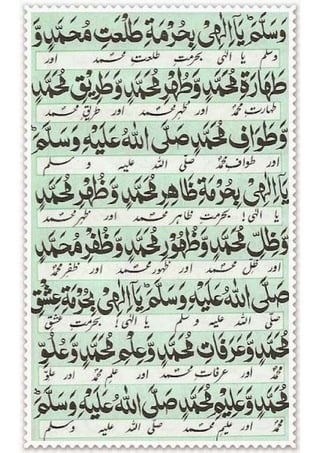 وَسَلَّمَ يَا اِلٰهِیْ بِحُرْمَةِ طَلْعَتِ مُحَمَّدٍ وَّ
وسلم یا الٰہی بحرمت طلعت محمد اور
طَهَارَةِ مُحَمَّدٍ وَّطُهْرِ مُحَمَّدٍ وَّطَرِيْقِ مُحَمَّدٍ
طہارت محمد اور طہر محمد اور طریق محمد
وَّطَوَافِ مُحَمَّدٍ صَلَّى اللهُ عَلَيْهِ وَسَلَّمَ
اور طواف محمد صلی اللہ علیہ و سلم
يَا اِلٰهِیْ بِحُرْمَةِ ظَاهِرِ مُحَمَّدٍ وَّظُهْرِ مُحَمَّدٍ
یا الٰہی! بحرمت ظاہر محمد اور ظہر محمد
وَّظِلِّ مُحَمَّدٍ وَّظُهُوْرِ مُحَمَّدٍ وَّظُفْرِ مُحَمَّدٍ
اور ظل محمد اور ظہور محمد اور ظفر محمد
صَلَّى اللهُ عَلَيْهِ وَسَلَّمَ يَا اِلٰهِیْ بِحُرْمَةِ عِشْقِ
صلی اللہ علیہ وسلم یا الٰہی! بحرمت عشق
مُحَمَّدٍ وَّعَرَفَاتِ مُحَمَّدٍ وَّعِلْمِ مُحَمَّدٍ وَّعُلُوِّ
محمد اور عرفات محمد اور علم محمد اور علو
مُحَمَّدٍ وَّعَلِيْمِ مُحَمَّدٍ صَلَّى اللهُ عَلَيْهِ وَسَلَّمَ
محمد اور علیم محمد صلی اللہ علیہ وسلم